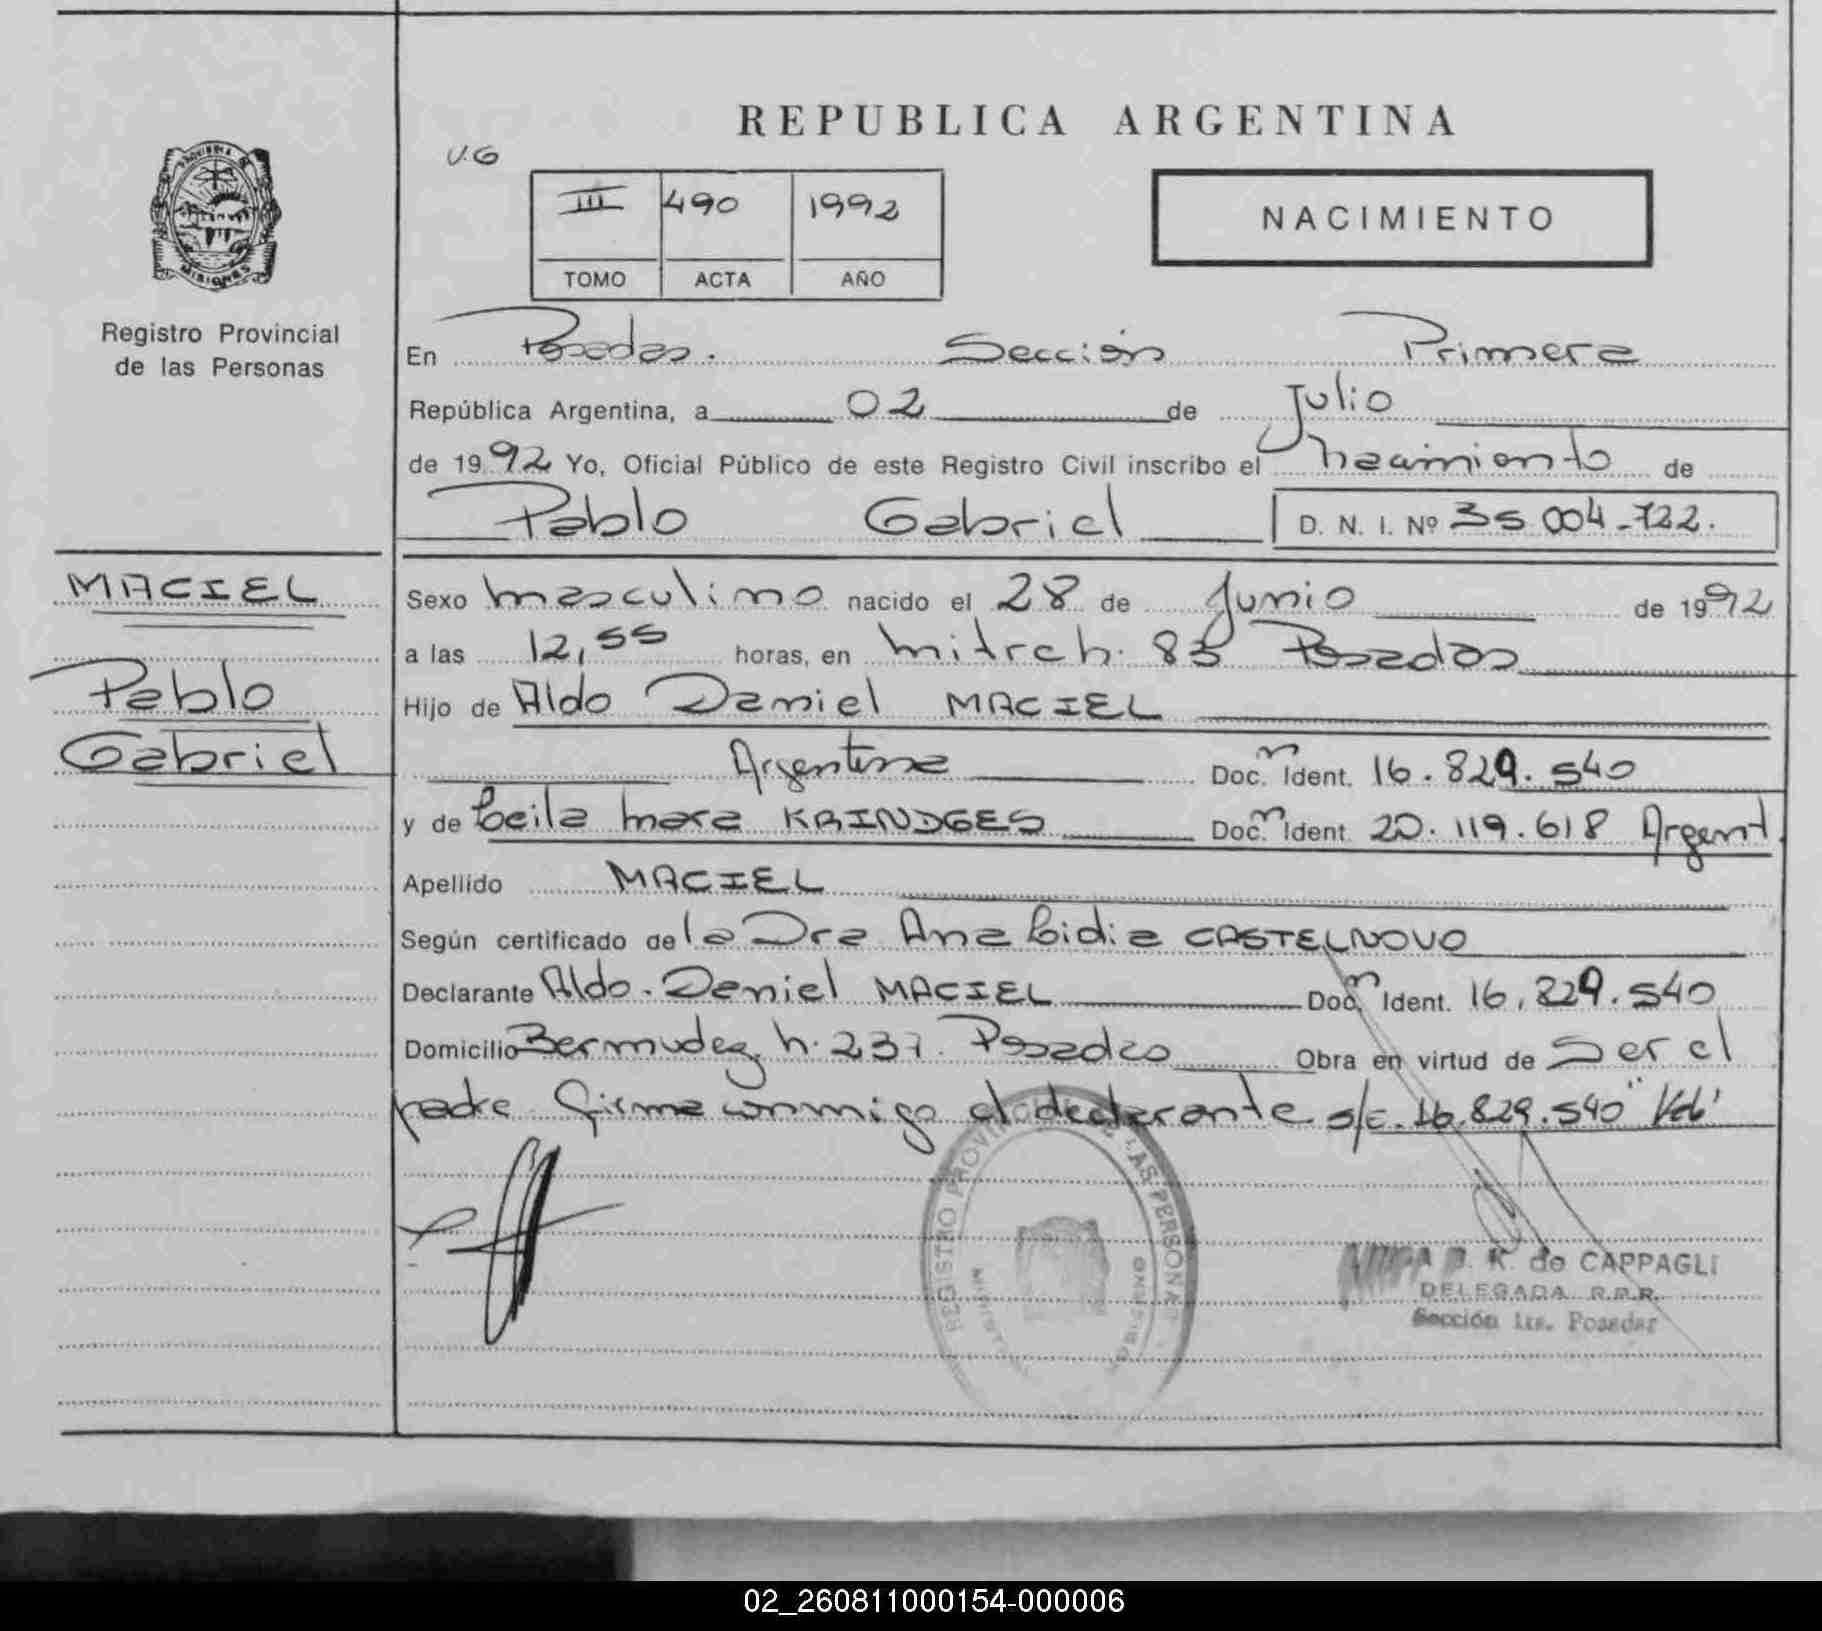 REPUBLICA ARGENTINA
U.G
III 490 1992
TOMO ACTA AÑO
NACIMIENTO
PROVINCIA DE
MISIONES
Registro Provincial
de las Personas
En Posadas. Sección Primera
República Argentina, a 02 de Julio
de 1992 Yo, Oficial Público de este Registro Civil inscribo el nacimiento de
Pablo Gabriel D. N. I. Nº 35.004.722.
MACIEL
Pablo
Gabriel
Sexo masculino nacido el 28 de Junio de 1992
a las 12,55 horas, en mitre h. 83 Posadas
Hijo de Aldo Daniel MACIEL
Argentina Doc.n Ident. 16.829.540
y de Leila mara KRINDGES Doc.n Ident. 20.119.618 Argent.
Apellido MACIEL
Según certificado de la Dra Ana Lidia CASTELNOVO
Declarante Aldo. Daniel MACIEL Doc.n Ident. 16.829.540
Domicilio Bermudez h. 237. Posadas Obra en virtud de Ser el
padre. Firma conmigo el declarante s/c. 16.829.540"
REGISTRO PROVINCIAL DE LAS PERSONAS
K. de CAPPAGLI
DELEGADA R.P.P.
Sección 1ra. Posadas
02_260811000154-000006